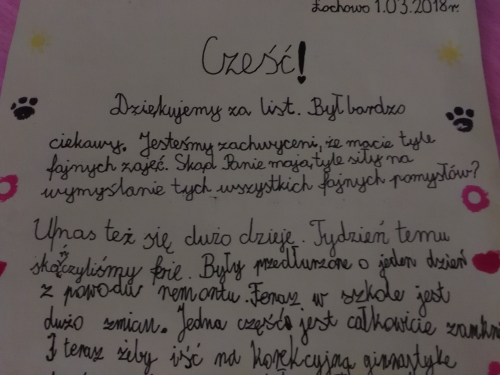 Łochowo 1.03.2018r.
Cześć!
Dziękujemy za list. Był bardzo
ciekawy. Jesteśmy zachwyceni, że macie tyle
fajnych zajęć. Skąd Panie mają tyle siły na
wymyślanie tych wszystkich fajnych pomysłów?
U nas też się dużo dzieje. Tydzień temu
skończyliśmy ferie. Były przedłużone o jeden dzień
z powodu remontu. Teraz w szkole jest
dużo zmian. Jedna część jest całkowicie
I teraz żeby iść na korekcyjną gimnastykę